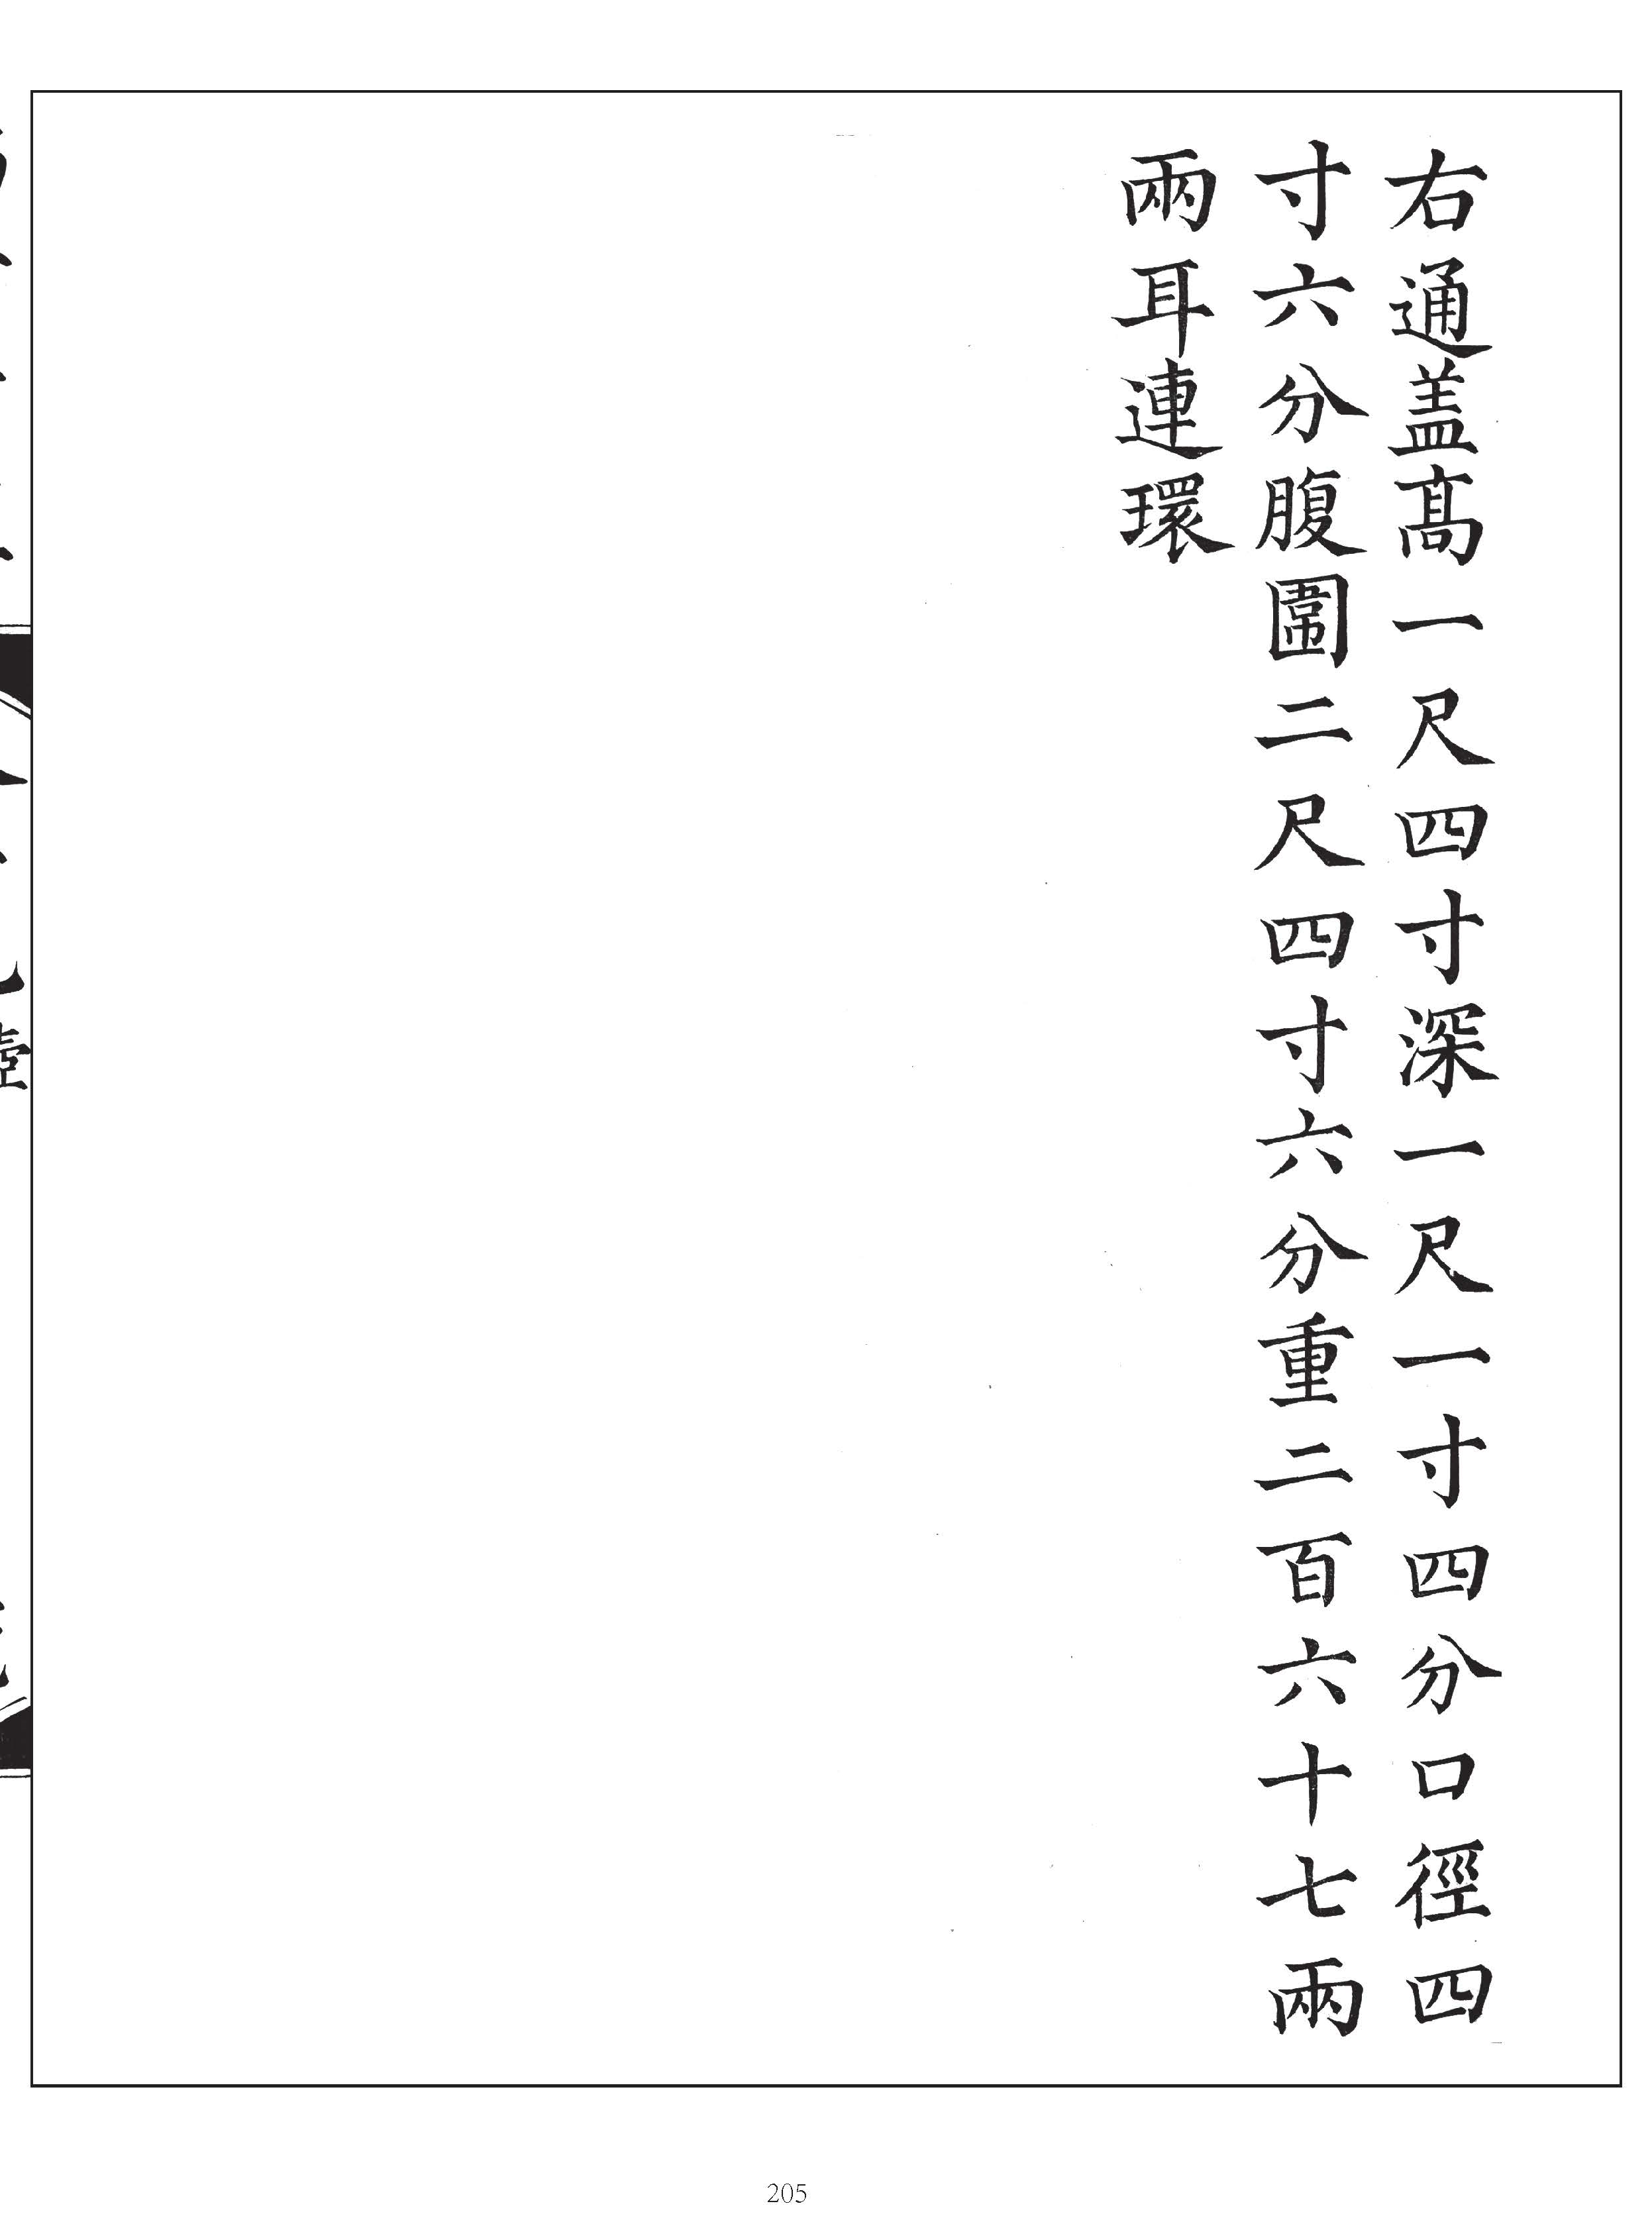 右通盖髙一尺四寸深一尺一寸四分口徑四
寸六分腹圍二尺四寸六分重二百六十七兩
兩耳連環
壺
205